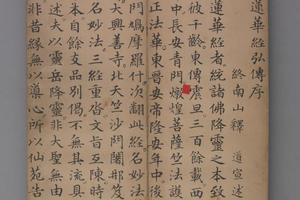 蓮華經弘傳序
終南山釋 道宣述
蓮華經者統諸佛降靈之本致
彼千齡東傳震旦三百餘載西
中長安青門燉煌菩薩竺法護
正法華東晉安帝隆安年中後
門鳩摩羅什次翻此經名妙法
大興善寺北天竺沙門闍那笈
名妙法三經重沓文旨互陳時
本自餘支品別偈不無其流具
述夫以靈岳降靈非大聖無由
非昔緣無以導心所以仙苑告